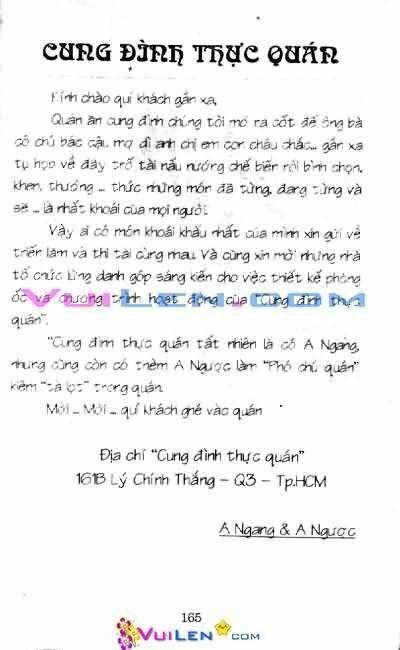 CUNG ĐÌNH THỰC QUÁN
Kính chào quí khách gần xa,
Quán ăn cung đình chúng tôi mở ra cốt để ông bà
cô chú bác cậu mợ dì anh chị em con cháu chắc... gần xa
tụ họp về đây trổ tài nấu nướng chế biến rồi bình chọn,
khen, thưởng ... thức những món đã từng, đang từng và
sẽ ... là nhất khoái của mọi người.
Vậy ai có món khoái khẩu nhất của mình xin gửi về
triển lãm và thi tài cùng nhau. Và cũng xin mời những nhà
tổ chức lừng danh góp sáng kiến cho việc thiết kế phòng
ốc và chương trình hoạt động của "Cung đình thực
quán".
"Cung đình thực quán tất nhiên là có A Ngang,
nhưng cũng còn có thêm A Ngược làm "Phó chủ quán"
kiêm "tà lọt" trong quán.
Mời ... Mời ... quí khách ghé vào quán
Địa chỉ "Cung đình thực quán"
161B Lý Chính Thắng - Q3 - Tp.HCM
A Ngang & A Ngược
VUILEN.COM
165
VUILEN.COM